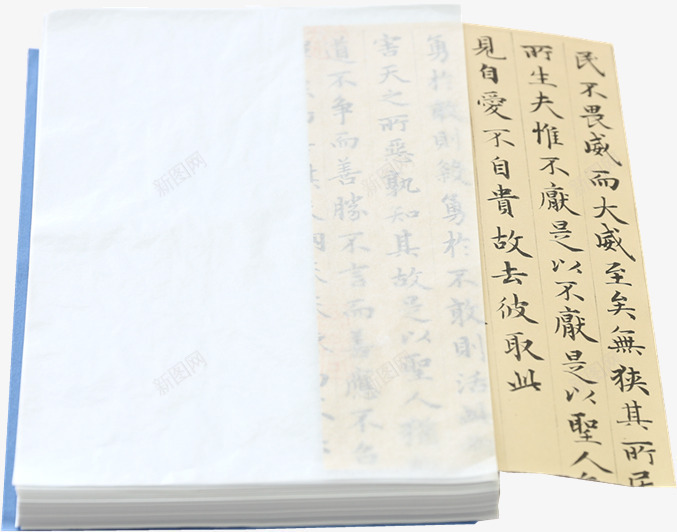 民不畏威而大威至矣無狹其所居
所生夫惟不厭是以不厭是以聖人
見自愛不自貴故去彼取此
勇於敢則殺勇於不敢則活此
害天之所惡孰知其故是以聖人猶
道不争而善勝不言而善應不召
新图网
新图网
新图网
新图网